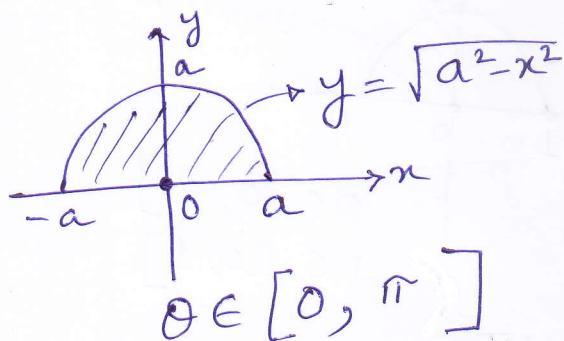 y
a
y = √(a² - x²)
x
-a 0 a
θ ∈ [0, π]